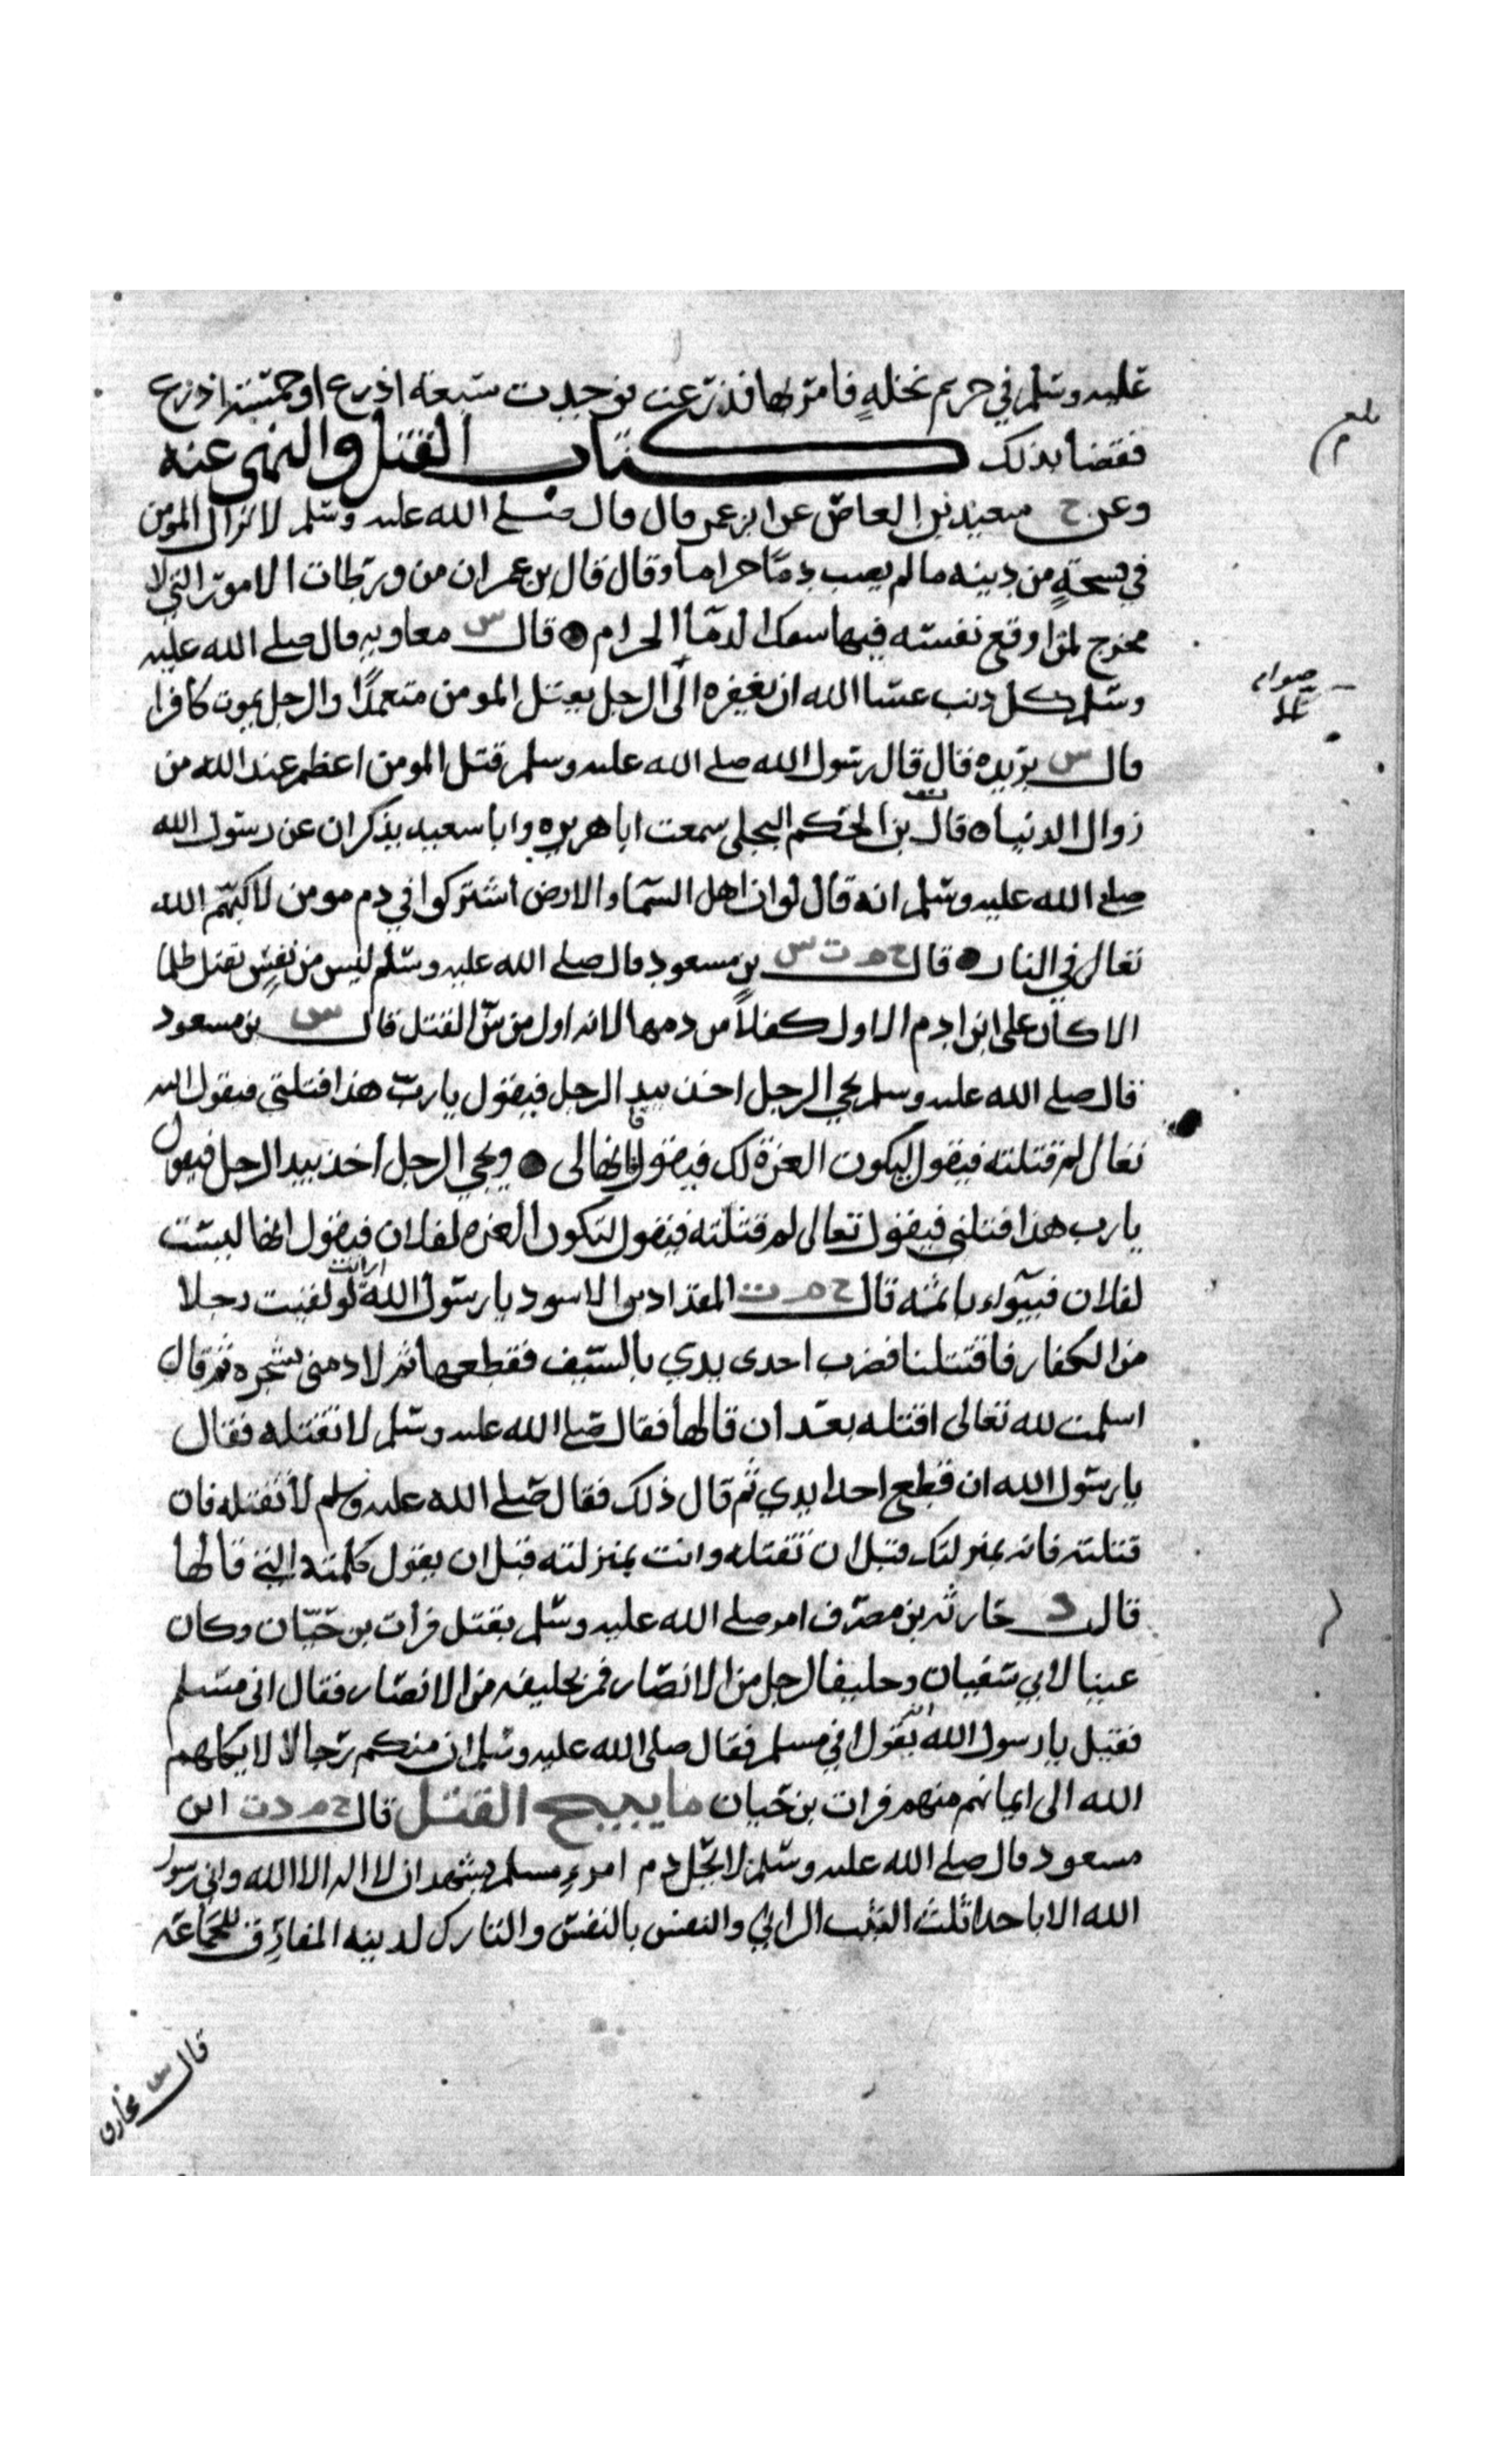 عليه وسلم في حريم نخلةٍ فامر بها فذرعت فوجدت سبعة اذرع او خمسة اذرع
فقضا بذلك كتاب القتل والنهي عنه
وعن خ سعيد بن العاص عن ابن عمر قال قال صلى الله عليه وسلم لا يزال المومن
في فسحةٍ من دينه ما لم يصب دمًا حراما وقال قال بن عمر ان من ورطات الامور التي لا
مخرج لمن اوقع نفسه فيها سفك الدما الحرام قال س معاويه قال صلى الله عليه
وسلم كل ذنب عسا الله ان يغفره الّا الرجل يقتل المومن متعمدًا والرجل يموت كافرا
قال س بريده قال قال رسول الله صلى الله عليه وسلم قتل المومن اعظم عند الله من
زوال الدنيا قال بن الحكم البجلي سمعت ابا هريره وابا سعيد يذكران عن رسول الله
صلى الله عليه وسلم انه قال لو ان اهل السما والارض اشتركوا في دم مومن لاكبّهم الله
تعالى في النار قال خ م ت س بن مسعود قال صلى الله عليه وسلم ليس من نفسٍ تقتل ظلما
الا كان على ابن ادم الاول كفلاً من دمها لانه اول من سن القتل قال س بن مسعود
قال صلى الله عليه وسلم يجي الرجل اخذ بيد الرجل فيقول يا رب هذا قتلني فيقول الله
تعالى لم قتلته فيقول ليكون العزة لك فيقول فانها لي ويجي الرجل اخذ بيد الرجل فيقول
يا رب هذا قتلني فيقول تعالى لم قتلته فيقول لتكون العزه لفلان فيقول انها ليست
لفلان فيبوء باثمه قال خ م ت المقداد بن الاسود يا رسول الله ارايت لو لقيت رجلا
من الكفار فاقتتلنا فضرب احدى يدي بالسيف فقطعها ثم لاذ مني بشجره ثم قال
اسلمت لله تعالى اقتله بعد ان قالها فقال صلى الله عليه وسلم لا تقتله فقال
يا رسول الله ان قطع احدا يدي ثم قال ذلك فقال صلى الله عليه وسلم لا تقتله فان
قتلته فانه بمنزلتك قبل ان تقتله وانت بمنزلته قبل ان يقول كلمته التي قالها
قال د حارثه بن مضرف امر صلى الله عليه وسلم بقتل فرات بن حيّان وكان
عينا لابي سفيان وحليفا لرجل من الانصار فمر بحليفه من الانصار فقال اني مسلم
فقيل يا رسول الله انه يقول اني مسلم فقال صلى الله عليه وسلم ان منكم رجالا لا يكلهم
الله الى ايمانهم منهم فرات بن حيان ما يبيح القتل قال خ م د ت ابن
مسعود قال صلى الله عليه وسلم لا يحل دم امرءٍ مسلم يشهد ان لا اله الا الله واني رسول
الله الا باحدا ثلث الثيب الزاني والنفس بالنفس والتارك لدينه المفارق للجماعة
قال س مخارق